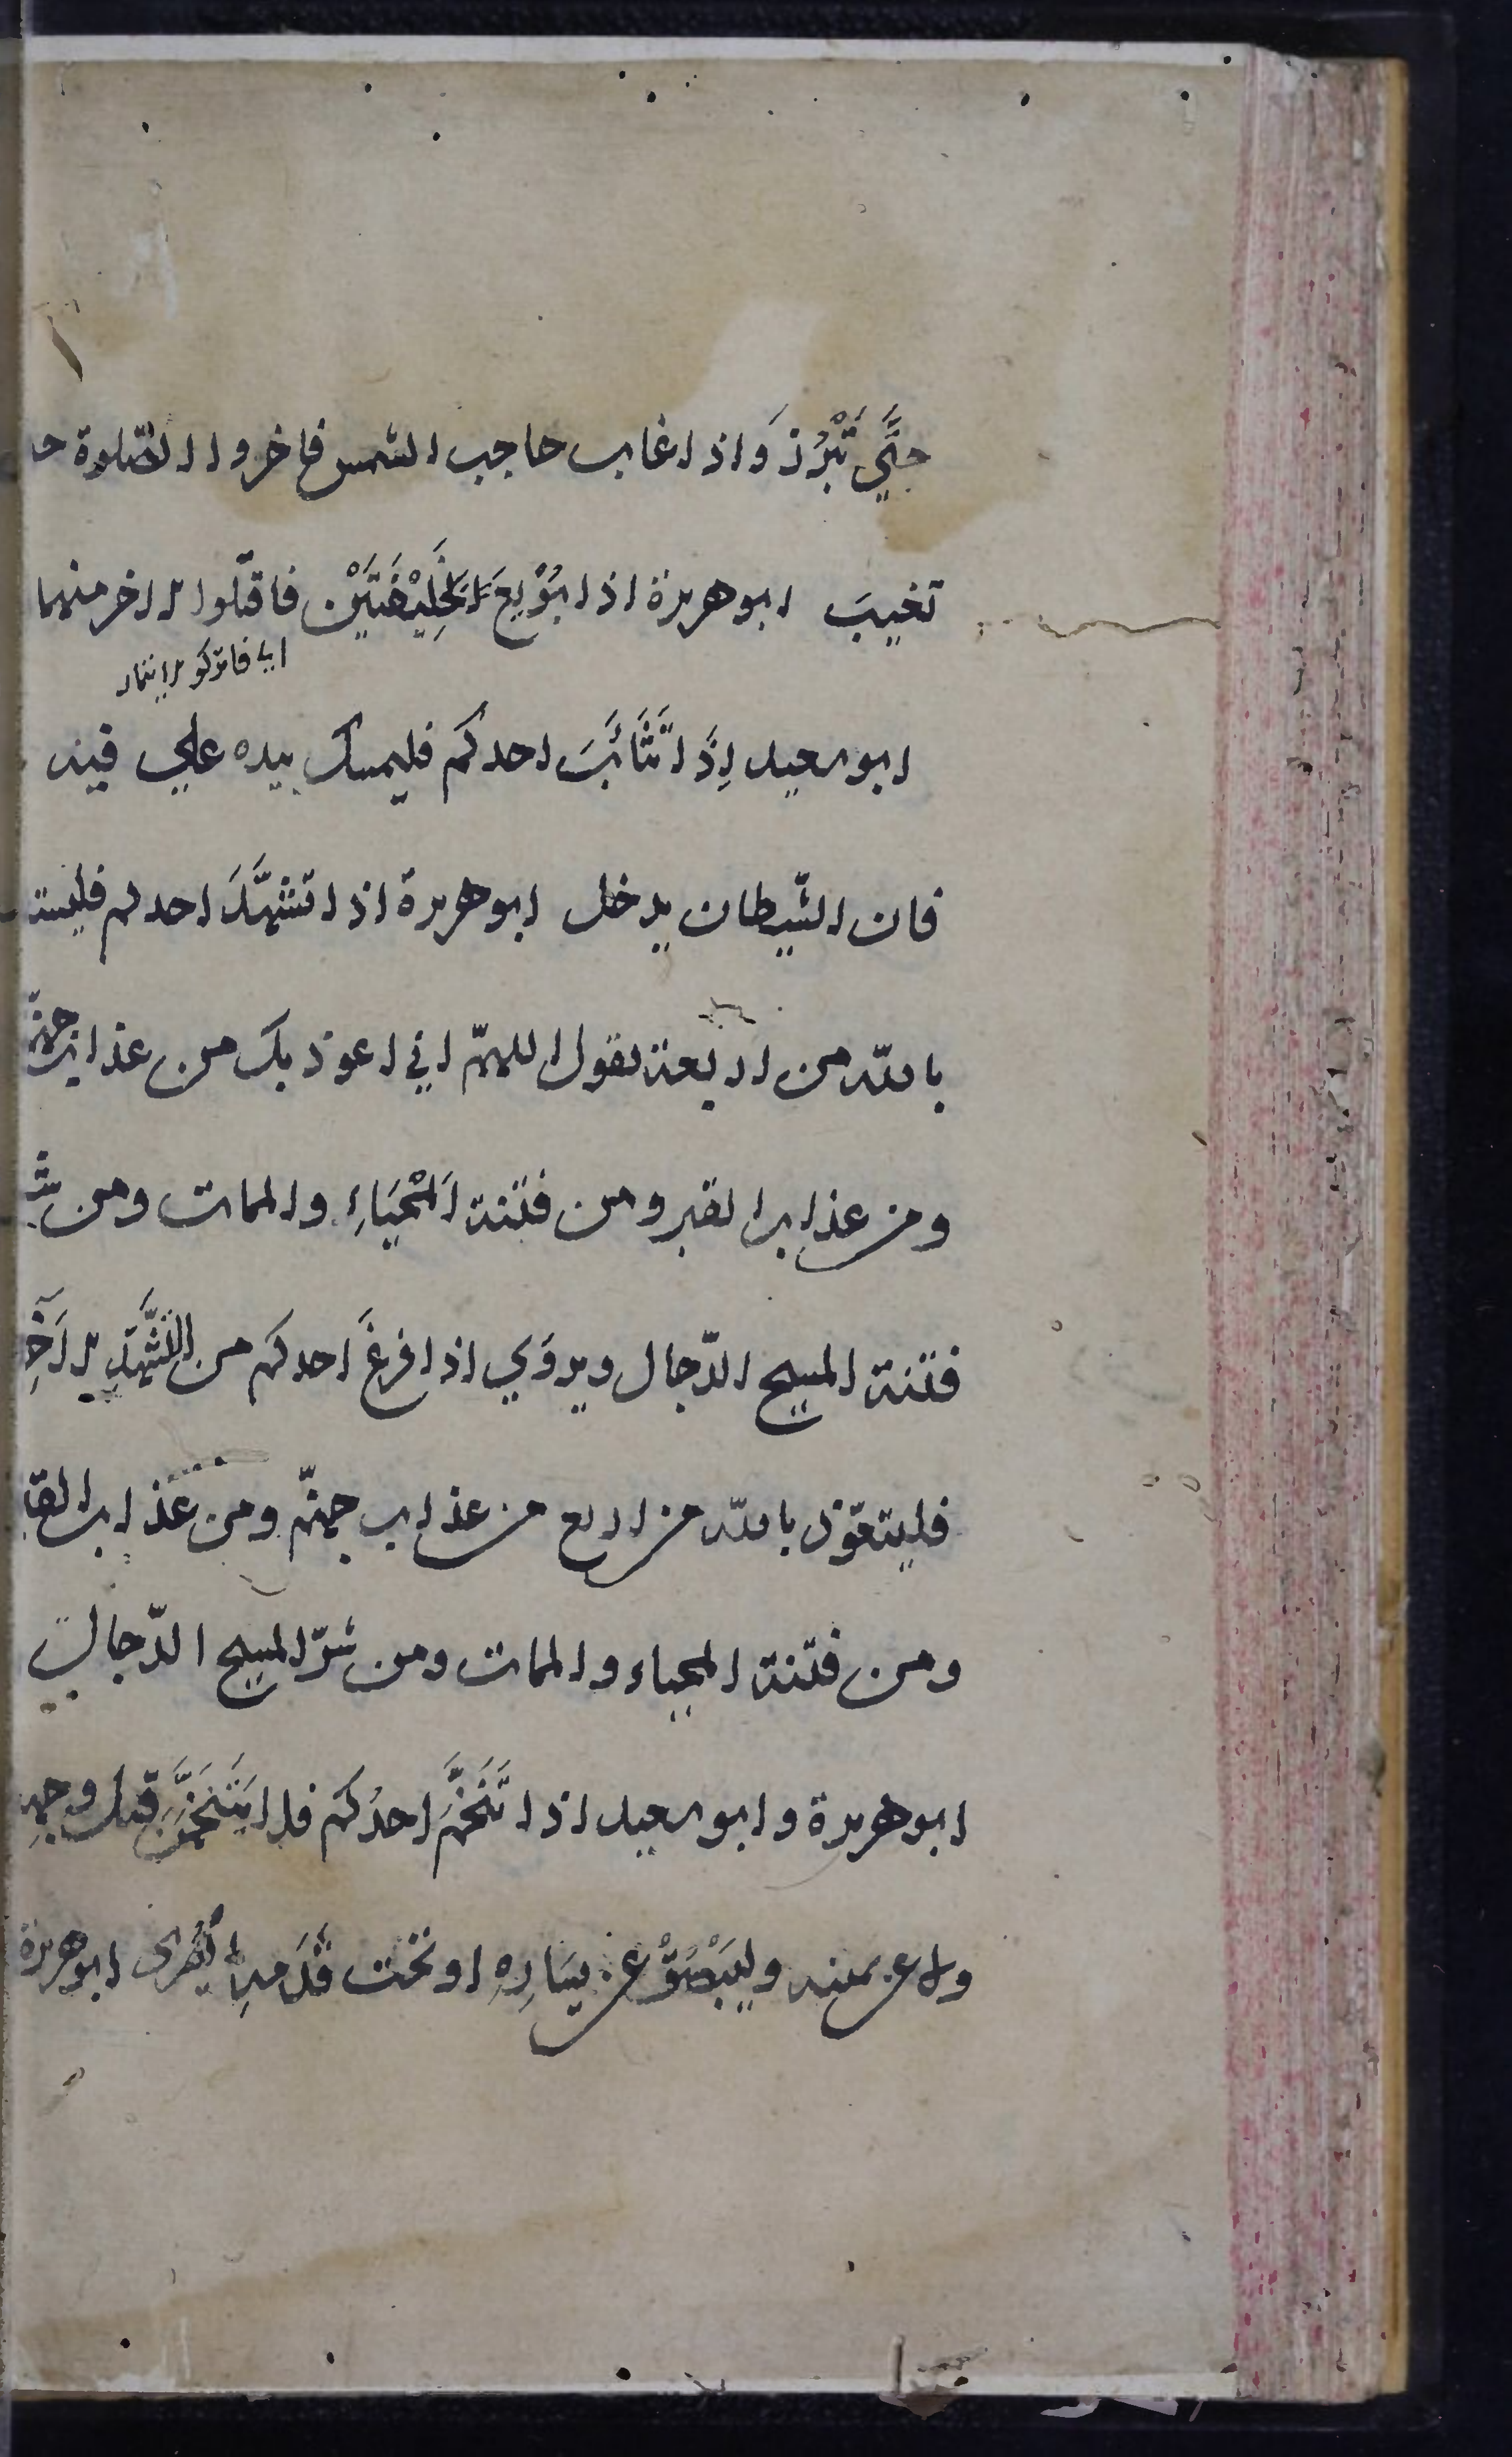 حتَّي تَبْرُزَ وَاذا غاب حاجب الشمس فاخروا الصّلوة حـ
تغيبَ ابو هريرة اذا بُوْيِعَ لِخَلِيْفَتَيْنِ فاقتلوا الاخر منهما
اي فاتركوا
ابو سعيد اِذَا تَثَائَبَ احدكم فليمسك بيده علي فيه
فان الشّيطان يدخل ابو هريرة اذا تشهَّدَ احدكم فليستـ
بالله من اربعة يقول اللهمّ اني اعوذ بك من عذاب جهنّم
ومن عذاب القبر ومن فتنة اَلْمحْيَاءِ والممات ومن شرّ
فتنة المسيح الدّجال ويروَي اذا فرغَ احدكم من التَّشَهُّدِ الآخِر
فليتعوّذ بالله من اربع من عذاب جهنّم ومن عذاب القبر
ومن فتنة المحياء والممات ومن شرّ المسيح الدّجال
ابو هريرة وابو سعيد اذا تَنَخَّمَ احدُكم فلا يَتَنَخَّمَنَّ قبل وجهِه
ولا عن يمينه وليَبْصُقْ عن يسَارِهِ او تحت قَدَمِهِ اليُسْرَى ابو هريرة